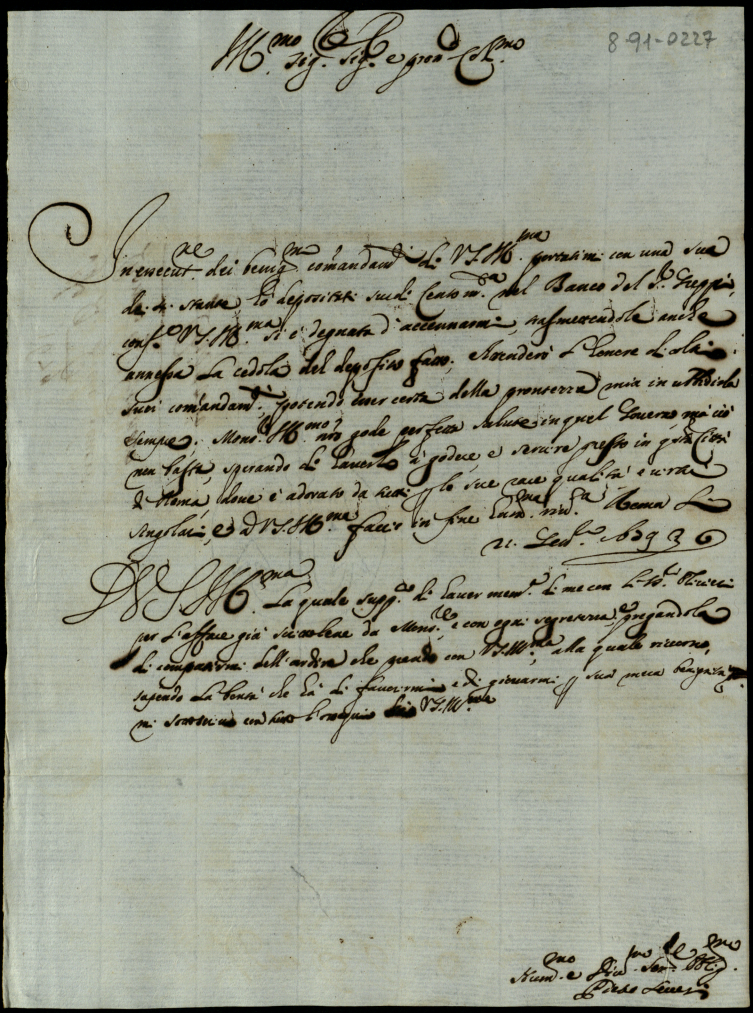 8-91-0227
Ill.mo Sig.r Sig.r e Pron Col.mo
In esecut.ne dei benig.mi comandam.ti di V.S. Ill.ma portatimi con una sua
delli stante hò depositati scudi Cento m.ta nel Banco del S.r Greppi,
conf.e V.S. Ill.ma si è degnata d'accennarmi, trasmettendole anche
annessa la cedola del deposito fatto; Attenderò l'honore di
suoi comandam.ti potendo esser certa della prontezza mia in ubbidirla
sempre. Mons.r Ill.mo nro gode perfetta salute in quel Governo, mà ciò
non basta, sperando di haverlo à godere e servire presto in q.sta Città
di Roma, dove è adorato da tutti p le sue rare qualità e virtù
singolari, et à V.S. Ill.ma faccio in fine hum.ma riv.za Roma Li
21. 1693
D V S Ill.ma La quale supp.co di haver mem.a di me con
per l'affare già da Mons.re, e con ogni segretezza, pregandola
di compatirmi dell'ardire che prendo con V.S. Ill.ma, alla quale ricorro,
sapendo la bontà che hà di favorirmi e di giovarmi p sua mera benignità,
mi con tutto l'ossequio V.S. Ill.ma
Hum.mo e Div.mo Ser.re Obl.mo
Pietro